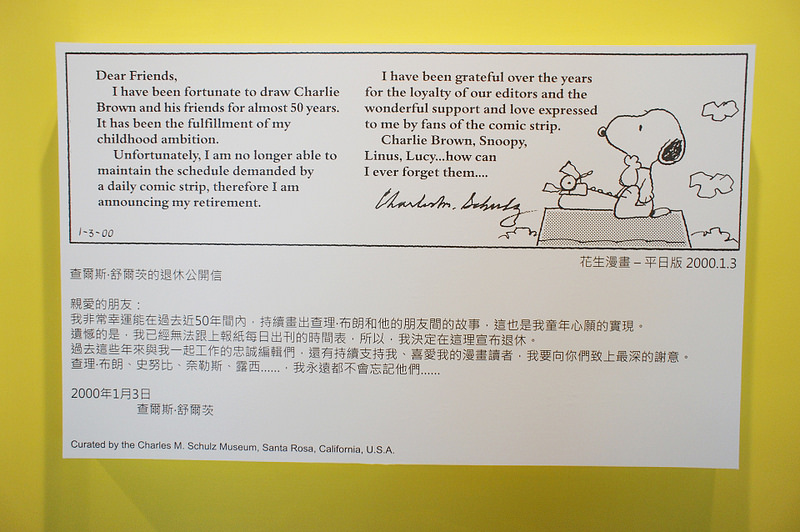 Dear Friends,
I have been fortunate to draw Charlie
Brown and his friends for almost 50 years.
It has been the fulfillment of my
childhood ambition.
Unfortunately, I am no longer able to
maintain the schedule demanded by
a daily comic strip, therefore I am
announcing my retirement.
1-3-00
I have been grateful over the years
for the loyalty of our editors and the
wonderful support and love expressed
to me by fans of the comic strip.
Charlie Brown, Snoopy,
Linus, Lucy...how can
I ever forget them....
Charles M. Schulz
花生漫畫 – 平日版 2000.1.3
查爾斯·舒爾茨的退休公開信
親愛的朋友：
我非常幸運能在過去近50年間內，持續畫出查理·布朗和他的朋友間的故事，這也是我童年心願的實現。
遺憾的是，我已經無法跟上報紙每日出刊的時間表，所以，我決定在這理宣布退休。
過去這些年來與我一起工作的忠誠編輯們，還有持續支持我、喜愛我的漫畫讀者，我要向你們致上最深的謝意。
查理·布朗、史努比、奈勒斯、露西......，我永遠都不會忘記他們......
2000年1月3日
查爾斯·舒爾茨
Curated by the Charles M. Schulz Museum, Santa Rosa, California, U.S.A.